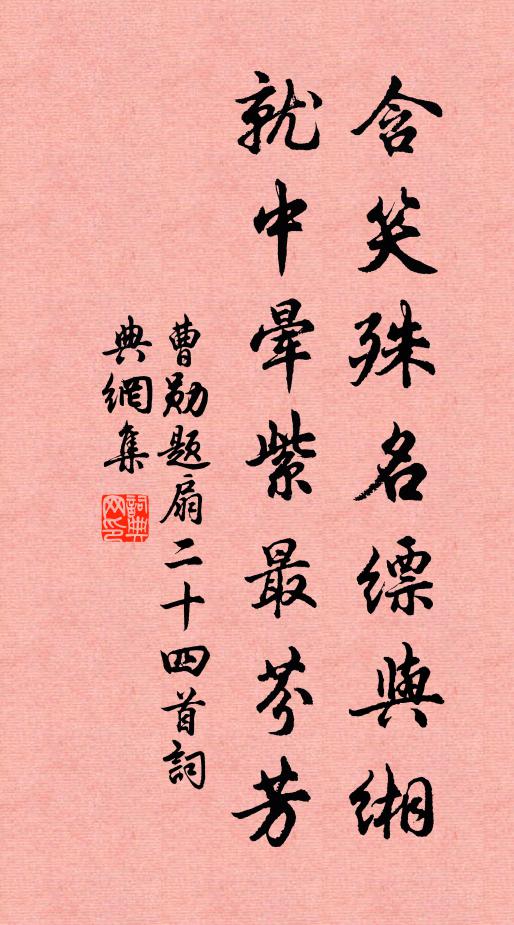 含笑殊名縹與緗
就中暈紫最芬芳
曹勛題扇二十四首詞
典網集
詞典网印